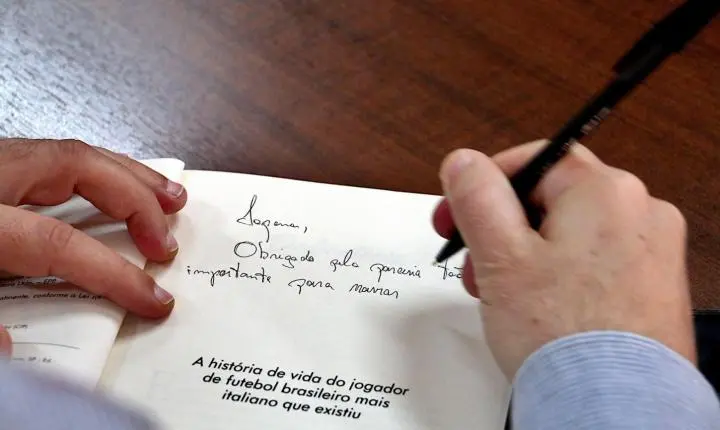 Obrigado pela parceria tão
importante para narrar
A história de vida do jogador
de futebol brasileiro mais
italiano que existiu
conforme a Lei